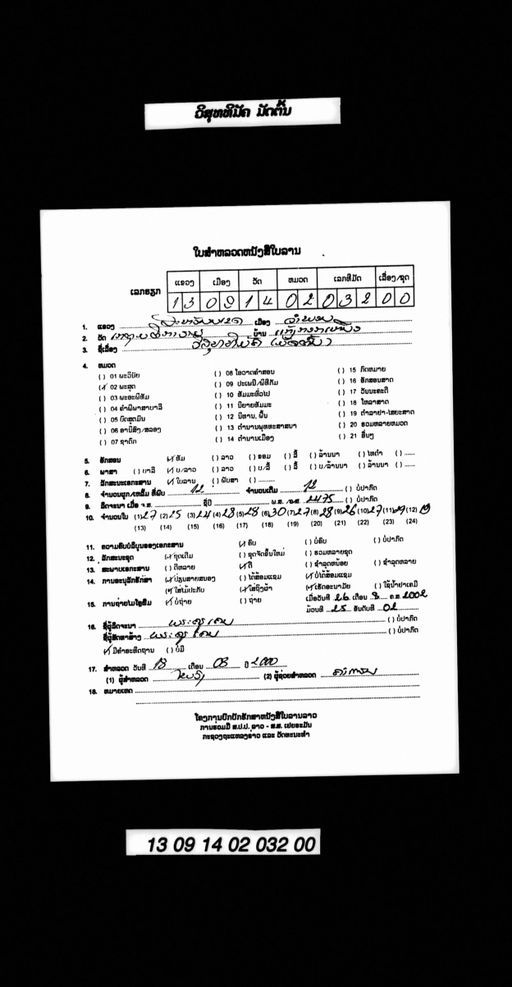 ວິສຸທທິມັຄ ມັດຕົ້ນ
ໃບສຳຫລວດຫນັງສືໃບລານ
ແຂວງ ເມືອງ ວັດ ຫມວດ ເລກທີມັດ ເລື່ອງ/ຊຸດ
ເລກຣຽກ 1 3 0 9 1 4 0 2 0 3 2 0 0
1. ແຂວງ ເມືອງ
2. ວັດ ບ້ານ
3. ຊື່ເລື່ອງ
4. ຫມວດ
( ) 01 ພະວິໄນ ( ) 08 ໂອວາດຄຳສອນ ( ) 15 ກົດຫມາຍ
(✓) 02 ພະສູດ ( ) 09 ປະເພນີ/ພິທີກັມ ( ) 16 ອັກສອນສາດ
( ) 03 ພະອະພິທັມ ( ) 10 ທັມມະທົ່ວໄປ ( ) 17 ວັນນະຄະດີ
( ) 04 ຄຳພີພາສາບາລີ ( ) 11 ນິຍາຍທັມມະ ( ) 18 ໂຫລາສາດ
( ) 05 ບົດສູດມົນ ( ) 12 ນິທານ, ພື້ນ ( ) 19 ຕຳລາຢາ-ໄສຍະສາດ
( ) 06 ອານິສົງ/ສລອງ ( ) 13 ຕຳນານພຸທທະສາສນາ ( ) 20 ຮວມຫລາຍຫມວດ
( ) 07 ຊາດົກ ( ) 14 ຕຳນານເມືອງ ( ) 21 ອື່ນໆ
5. ອັກສອນ (✓) ທັມ ( ) ລາວ ( ) ຂອມ ( ) ລື້ ( ) ລ້ານນາ ( ) ໄທດຳ ( )
6. ພາສາ ( ) ບາລີ (✓) ບ/ລາວ ( ) ລາວ ( ) ບ/ລື້ ( ) ລື້ ( ) ບ/ລ້ານນາ ( ) ລ້ານນາ ( )
7. ລັກສະນະເອກະສານ (✓) ໃບລານ ( ) ພັບສາ ( )
8. ຈຳນວນຜູກ/ເຫລັ້ມ ທີ່ພົບ 12 ຈຳນວນເຕັມ 12 ( ) ບໍ່ປາກົດ
9. ລິດຈະນາ ເມື່ອ ຈ.ສ. ຊຶ່ປີ ພ.ສ. /ຄ.ສ. 2475 ( ) ບໍ່ປາກົດ
10. ຈຳນວນໃບ (1) 27 (2) 25 (3) 24 (4) 28 (5) 28 (6) 30 (7) 27 (8) 28 (9) 26 (10) 27 (11) 27 (12) 19
(13) (14) (15) (16) (17) (18) (19) (20) (21) (22) (23) (24)
11. ຄວາມຄົບບໍຣິບູນຂອງເອກະສານ (✓) ຄົບ ( ) ບໍ່ຄົບ ( ) ບໍ່ປາກົດ
12. ລັກສະນະຊຸດ (✓) ຊຸດເດີມ ( ) ຊຸດຈັດຂຶ້ນໃຫມ່ ( ) ຮວມຫລາຍຊຸດ
13. ສະພາບເອກະສານ ( ) ດີຫລາຍ (✓) ດີ ( ) ຊຳລຸດຫນ້ອຍ ( ) ຊຳລຸດຫລາຍ
14. ການອະນຸລັກຮັກສາ (✓) ປ່ຽນສາຍສນອງ ( ) ໄດ້ສ້ອມແຊມ (✓) ບໍ່ໄດ້ສ້ອມແຊມ
(✓) ໃສ່ໄມ້ປະກັບ (✓) ໃສ່ຖົງຜ້າ (✓) ເຮັດອະນາໄມ ( ) ໃຊ້ນ້ຳຢາເຄມີ
15. ການຖ່າຍໄມໂຄຼຟິມ (✓) ບໍ່ຖ່າຍ ( ) ຖ່າຍ ເມື່ອວັນທີ 26 ເດືອນ ຄ.ສ 2002
ມ້ວນທີ 25 ອັນດັບທີ 02
16. ຊື່ຜູ້ລິດຈະນາ ( ) ບໍ່ປາກົດ
ຊື່ຜູ້ສັດທາສ້າງ ( ) ບໍ່ປາກົດ
(✓) ມີຄຳອະທິດຖານ ( ) ບໍ່ມີ
17. ສຳຫລວດ ວັນທີ 13 ເດືອນ 03 ປີ 2000
(1) ຜູ້ສຳຫລວດ (2) ຜູ້ຊ່ວຍສຳຫລວດ
18. ຫມາຍເຫດ
ໂຄງການປົກປັກຮັກສາຫນັງສືໃບລານລາວ
ການຮ່ວມມື ສ.ປ.ປ. ລາວ - ສ.ສ. ເຢຍຣະມັນ
ກະຊວງຖະແຫລງຂ່າວ ແລະ ວັດທະນະທຳ
13 09 14 02 032 00